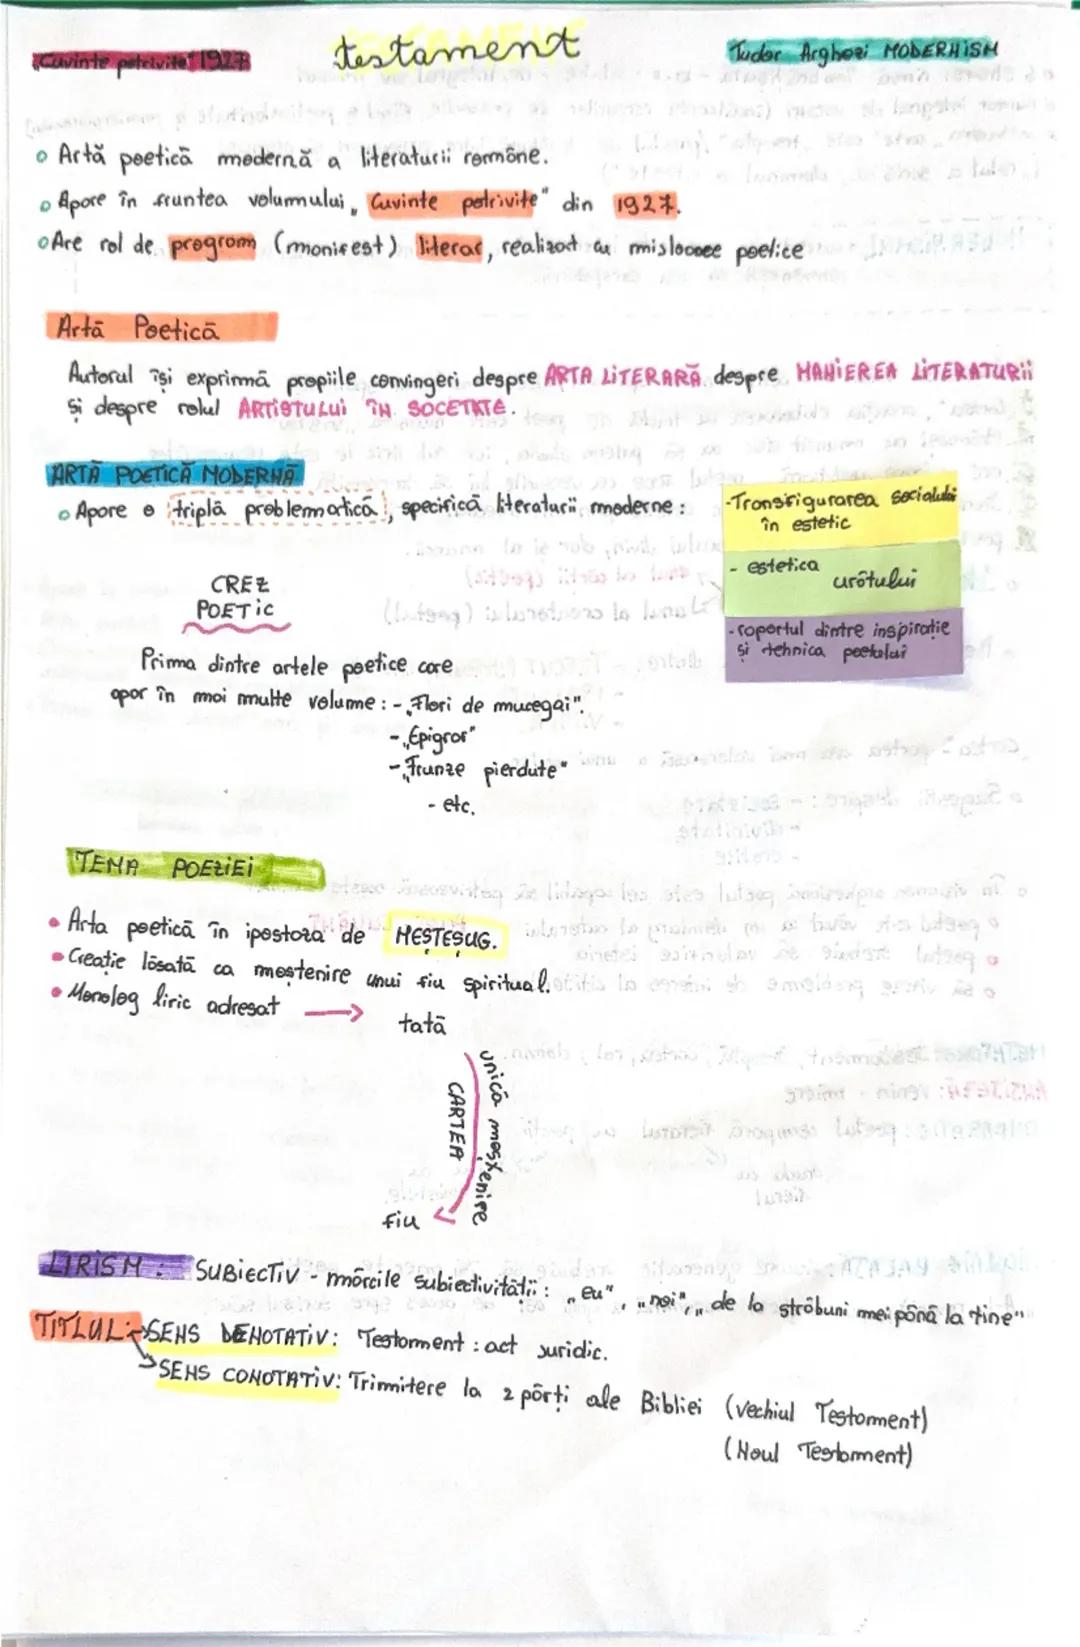 "Cuvinte potrivite" 1927
testament
Tudor Arghezi MODERNISM
Artă poetică modernă a literaturii române.
Apare în fruntea volumului „Cuvinte potrivite" din 1927.
Are rol de program (manifest) literar, realizat cu misloacee poetice
Artă Poetică
Autorul își exprimă propiile convingeri despre ARTA LITERARĂ despre MANIEREA LITERATURII
și despre rolul ARTISTULUI ÎN SOCETATE.
ARTĂ POETICĂ MODERNĂ
Apare o triplă problematică, specifică literaturii moderne:
-Transfigurarea socialului
în estetic
- estetica
urâtului
-raportul dintre inspirație
și tehnica poetului
CREZ
POETIC
Prima dintre artele poetice care
apar în mai multe volume: - „Flori de mucegai".
- „Epigraf"
- „Frunze pierdute"
- etc.
TEMA POEZIEI
Arta poetică în ipostaza de MEȘTEȘUG.
Creație lăsată ca moștenire unui fiu spiritual.
Monolog liric adresat → tată
unică moștenire
CARTEA
fiu
LIRISM: SUBIECTIV - mărcile subiectivității: „eu", „noi", „de la străbuni mei până la tine"
TITLUL: SENS DENOTATIV: Testament: act juridic.
SENS CONOTATIV: Trimitere la 2 părți ale Bibliei (Vechiul Testament)
(Noul Testament)